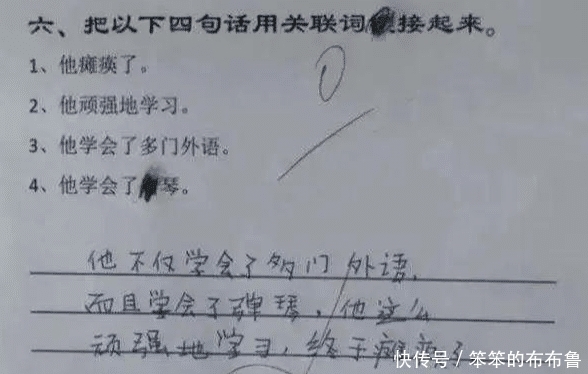 六、把以下四句话用关联词接起来。
1、他瘫痪了。
2、他顽强地学习。
3、他学会了多门外语。
4、他学会了琴。
他不仅学会了多门外语,
而且学会了弹琴,他这么
顽强地学习,终于瘫痪了
快传号/笨笨的布布鲁